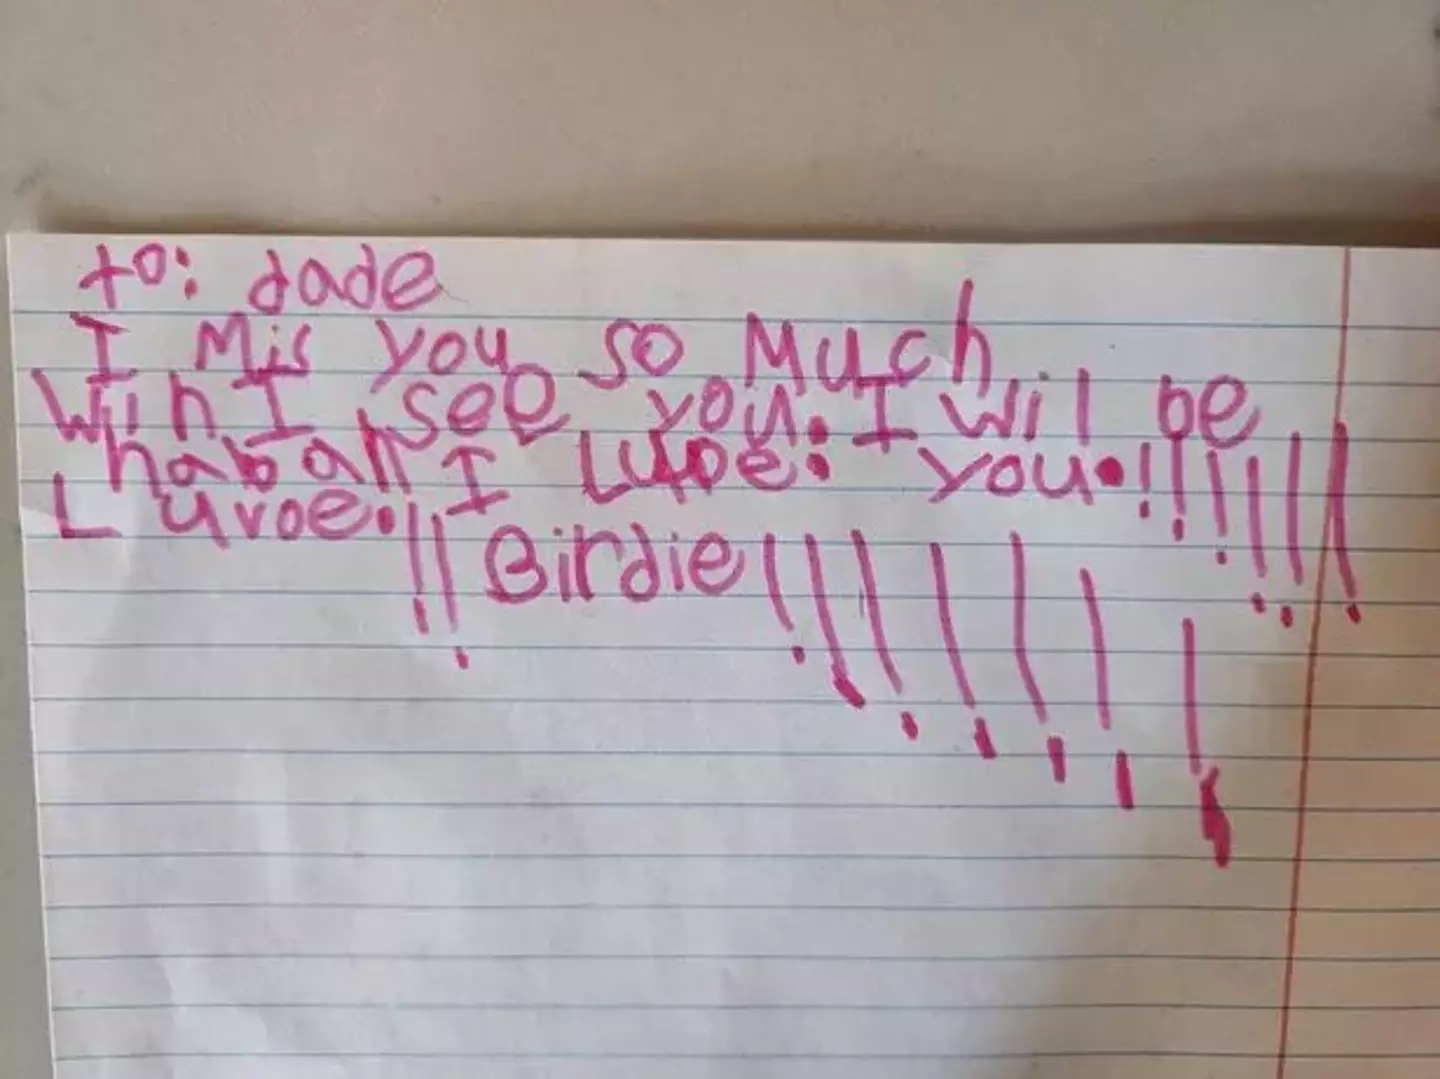 to: dade
I Mis you so Much
win I see you. I wil be
haball I Luve. you.!!!!!!!
Luvoe.!! 
Birdie!!!!!!!